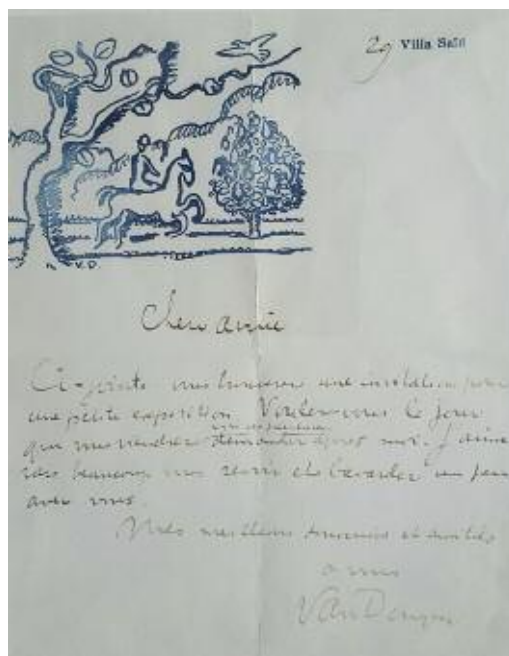 29 Villa Saïd
V.D.
Chère amie
Ci-joints vous trouverez une invitation pour
une petite exposition. Voulez-vous le jour
que vous viendrez demander après moi. J'aime
rais beaucoup vous revoir et bavarder un peu
avec vous.
Mes meilleurs souvenirs et amitiés
à vous
Van Dongen